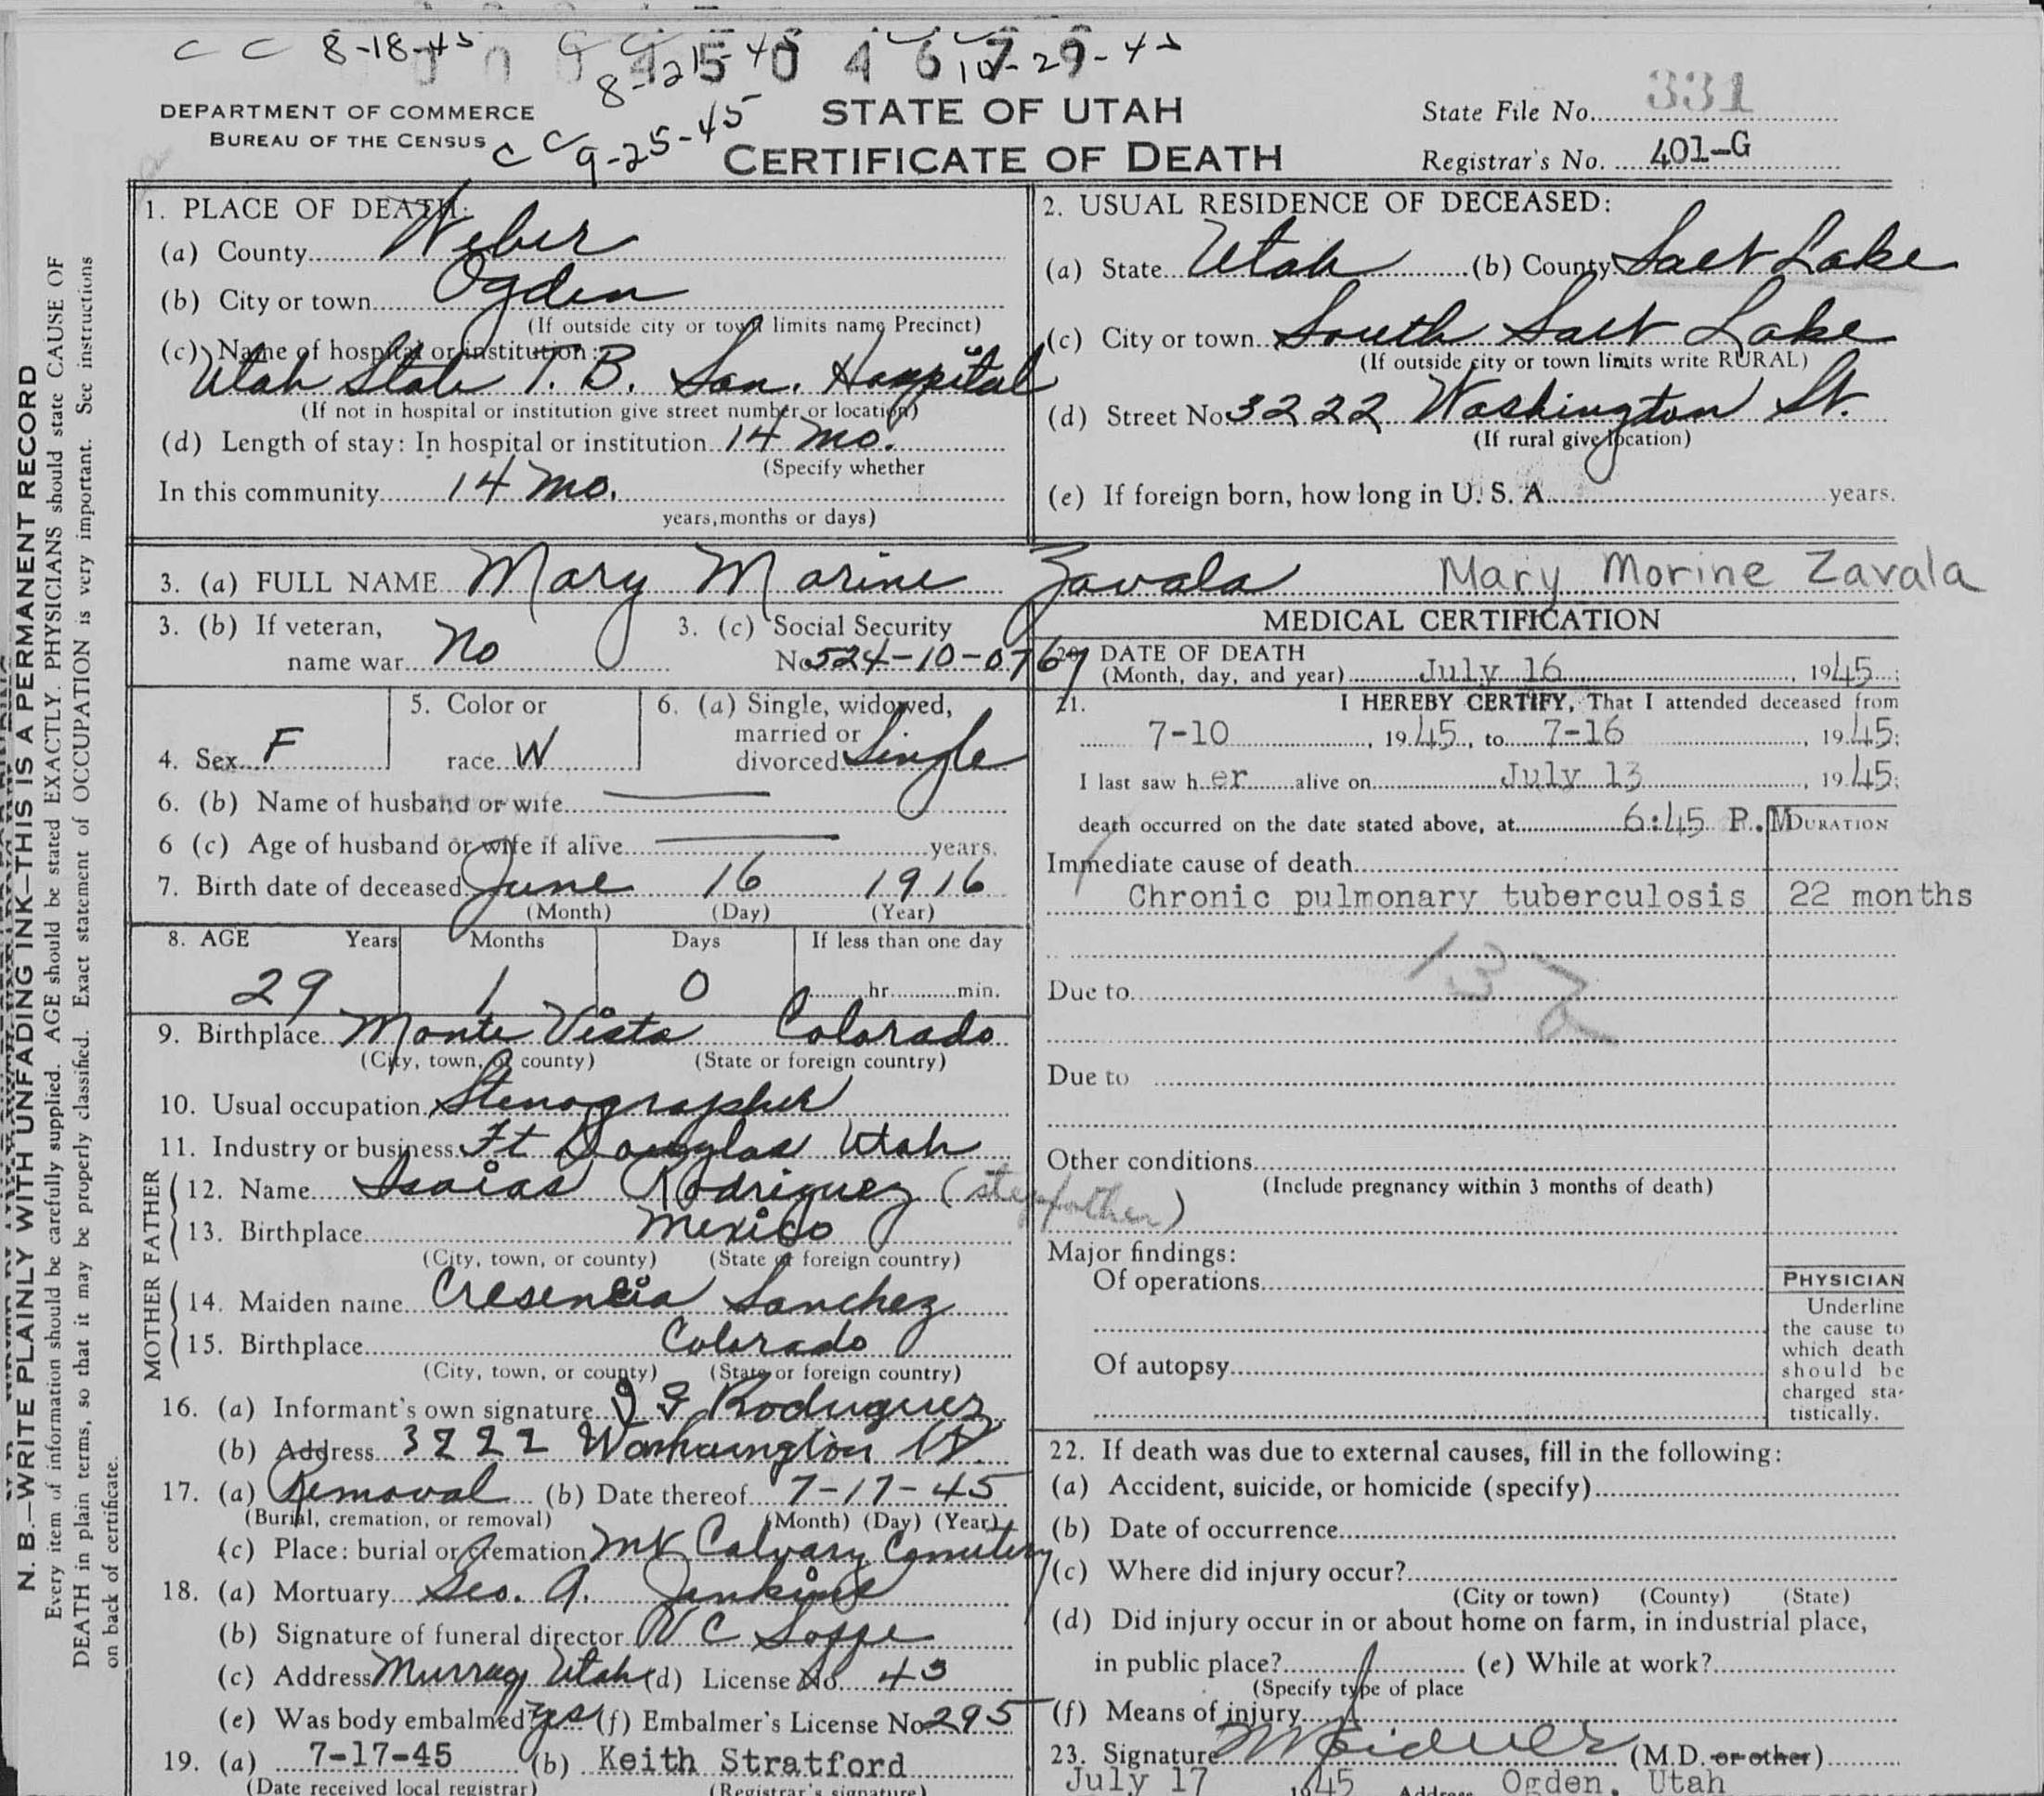 C C 8-18-45
8-21-45
10-29-45
C C 9-25-45
DEPARTMENT OF COMMERCE
BUREAU OF THE CENSUS
STATE OF UTAH
CERTIFICATE OF DEATH
State File No. 331
Registrar's No. 401-G
N. B.—WRITE PLAINLY WITH UNFADING INK—THIS IS A PERMANENT RECORD
Every item of information should be carefully supplied. AGE should be stated EXACTLY. PHYSICIANS should state CAUSE OF
DEATH in plain terms, so that it may be properly classified. Exact statement of OCCUPATION is very important. See instructions
on back of certificate.
1. PLACE OF DEATH:
(a) County Weber
(b) City or town Ogden
(If outside city or town limits name Precinct)
(c) Name of hospital or institution:
Utah State T. B. San. Hospital
(If not in hospital or institution give street number or location)
(d) Length of stay: In hospital or institution 14 mo.
(Specify whether
In this community 14 mo.
years, months or days)
2. USUAL RESIDENCE OF DECEASED:
(a) State Utah (b) County Salt Lake
(c) City or town South Salt Lake
(If outside city or town limits write RURAL)
(d) Street No. 3222 Washington St.
(If rural give location)
(e) If foreign born, how long in U. S. A. years.
3. (a) FULL NAME Mary Morine Zavala Mary Morine Zavala
3. (b) If veteran,
name war No
3. (c) Social Security
No. 524-10-0767
4. Sex F
5. Color or
race W
6. (a) Single, widowed,
married or
divorced Single
6. (b) Name of husband or wife
6 (c) Age of husband or wife if alive years.
7. Birth date of deceased June 16 1916
(Month) (Day) (Year)
8. AGE Years Months Days If less than one day
29 1 0 hr. min.
9. Birthplace Monte Vista Colorado
(City, town, or county) (State or foreign country)
10. Usual occupation Stenographer
11. Industry or business Ft Douglas Utah
FATHER
12. Name Isaias Rodriguez (stepfather)
13. Birthplace Mexico
(City, town, or county) (State or foreign country)
MOTHER
14. Maiden name Cresencia Sanchez
15. Birthplace Colorado
(City, town, or county) (State or foreign country)
16. (a) Informant's own signature Rodriguez
(b) Address 3222 Washington St.
17. (a) Removal (b) Date thereof 7-17-45
(Burial, cremation, or removal) (Month) (Day) (Year)
(c) Place: burial or cremation Mt Calvary Cemetery
18. (a) Mortuary Geo. A. Jenkins
(b) Signature of funeral director
(c) Address Murray Utah (d) License No. 43
(e) Was body embalmed? yes (f) Embalmer's License No. 295
19. (a) 7-17-45 (b) Keith Stratford
(Date received local registrar) (Registrar's signature)
MEDICAL CERTIFICATION
20. DATE OF DEATH
(Month, day, and year) July 16, 1945;
21. I HEREBY CERTIFY, That I attended deceased from
7-10, 1945, to 7-16, 1945;
I last saw her alive on July 13, 1945;
death occurred on the date stated above, at 6:45 P.M DURATION
Immediate cause of death
Chronic pulmonary tuberculosis 22 months
Due to
Due to
Other conditions
(Include pregnancy within 3 months of death)
Major findings:
Of operations
Of autopsy
PHYSICIAN
Underline
the cause to
which death
should be
charged sta-
tistically.
22. If death was due to external causes, fill in the following:
(a) Accident, suicide, or homicide (specify)
(b) Date of occurrence
(c) Where did injury occur?
(City or town) (County) (State)
(d) Did injury occur in or about home on farm, in industrial place,
in public place? (e) While at work?
(Specify type of place
(f) Means of injury
23. Signature (M.D. or other)
July 17 1945 Address Ogden, Utah